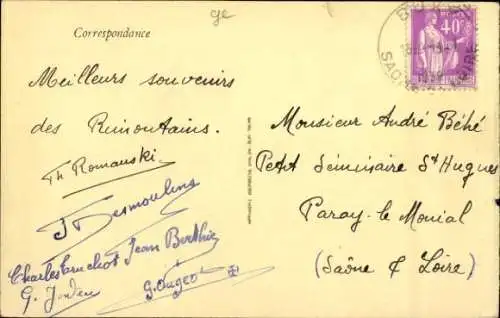 ge
Correspondance
40c
SAÔNE
Meilleurs souvenirs
des Rimontains.
Th Romanski
J Desmoulins
Charles Cruchot Jean Berthie
G.
Monsieur André Béhé
Petit Séminaire St Hugues
Paray-le Monial
(Saône & Loire)